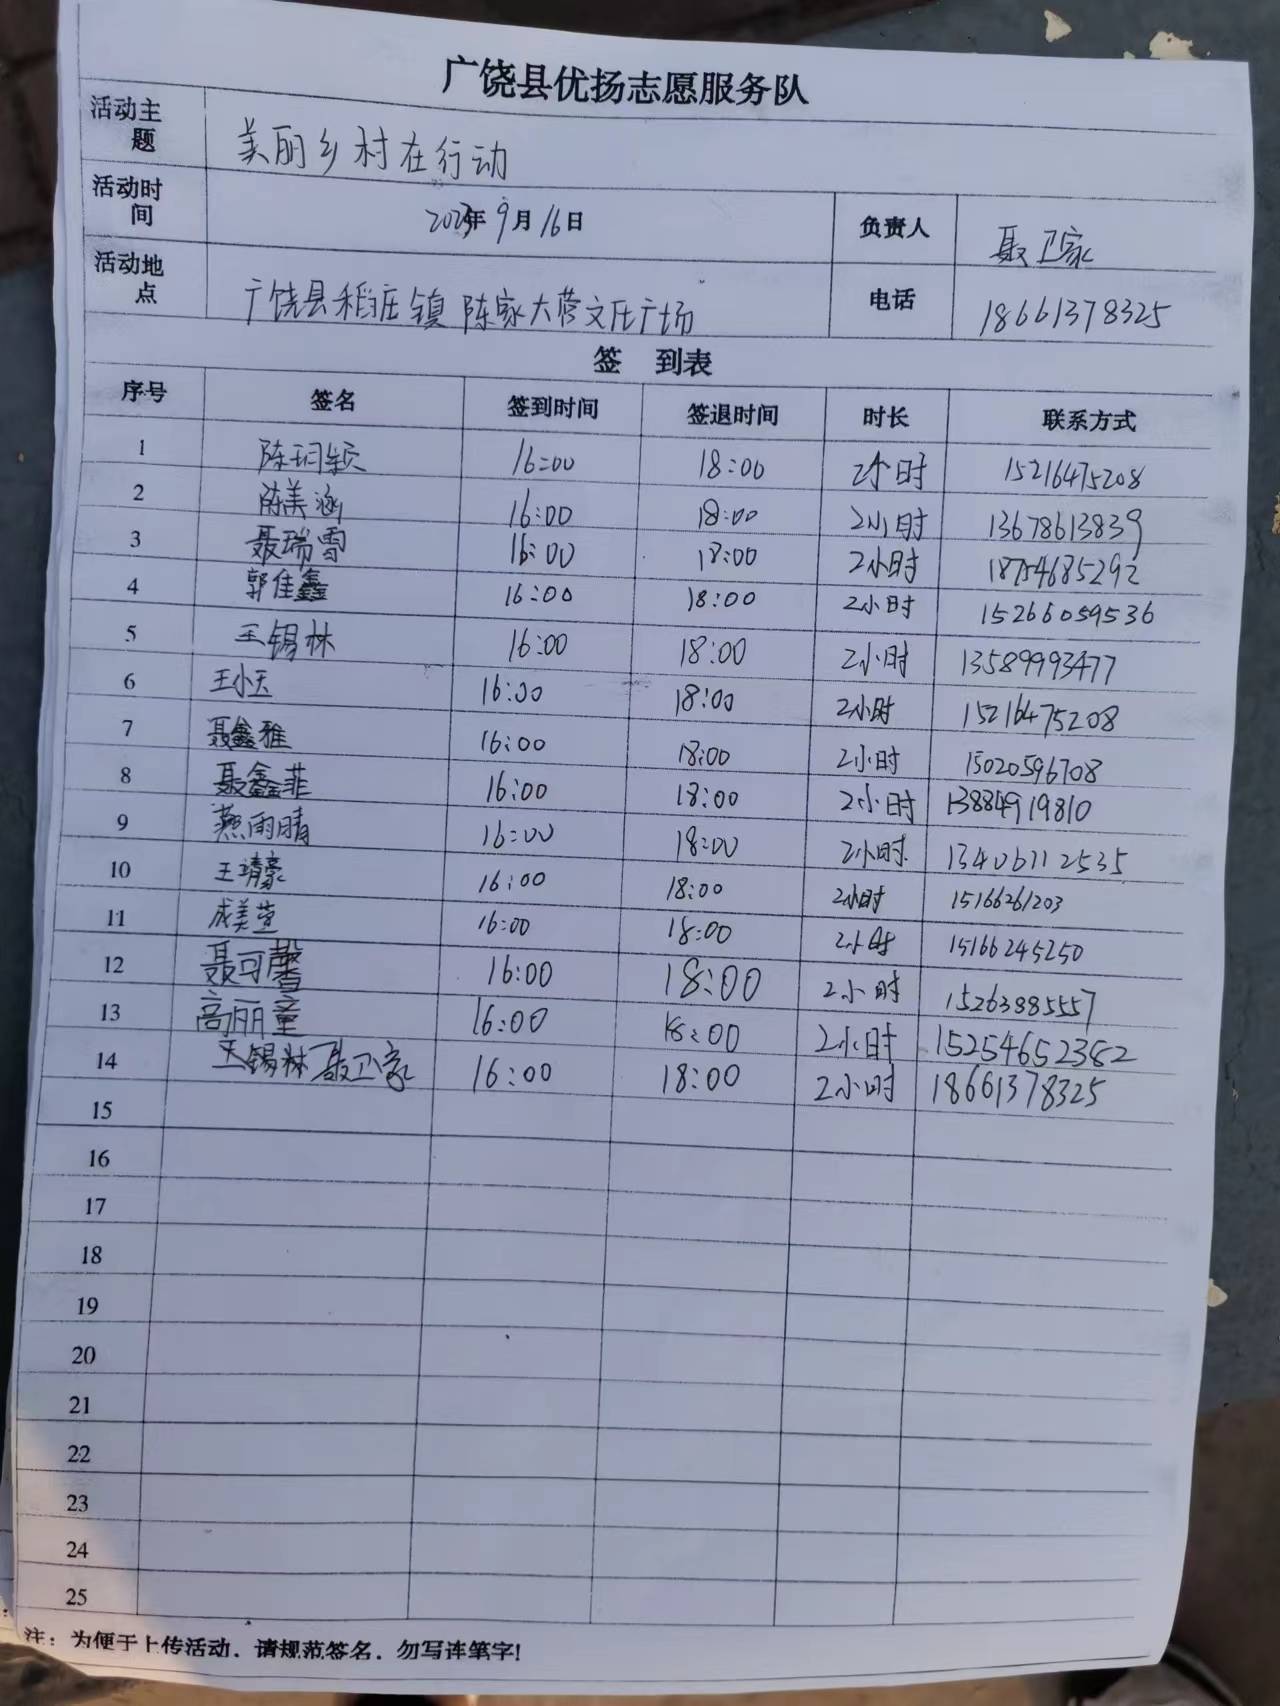 广饶县优扬志愿服务队
活动主题 美丽乡村在行动
活动时间 2023年9月16日 负责人 聂卫家
活动地点 广饶县稻庄镇陈家大营文体广场 电话 18661378325
签 到表
序号 签名 签到时间 签退时间 时长 联系方式
1 陈玥颖 16:00 18:00 2个时 15216475208
2 陈美涵 16:00 18:00 2小时 13678613839
3 聂瑞雪 16:00 18:00 2小时 18754685292
4 郭佳鑫 16:00 18:00 2小时 15266059536
5 王锡林 16:00 18:00 2小时 13589993477
6 王小天 16:00 18:00 2小时 15216475208
7 聂鑫雅 16:00 18:00 2小时 15020596708
8 聂鑫菲 16:00 18:00 2小时 13884919810
9 燕雨晴 16:00 18:00 2小时 13406112535
10 王靖豪 16:00 18:00 2小时 15166261203
11 成美萱 16:00 18:00 2小时 15166245250
12 聂可馨 16:00 18:00 2小时 15263885557
13 高丽童 16:00 18:00 2小时 15254652382
14 王锡林 聂卫家 16:00 18:00 2小时 18661378325
15
16
17
18
19
20
21
22
23
24
25
注：为便于上传活动，请规范签名，勿写连笔字!